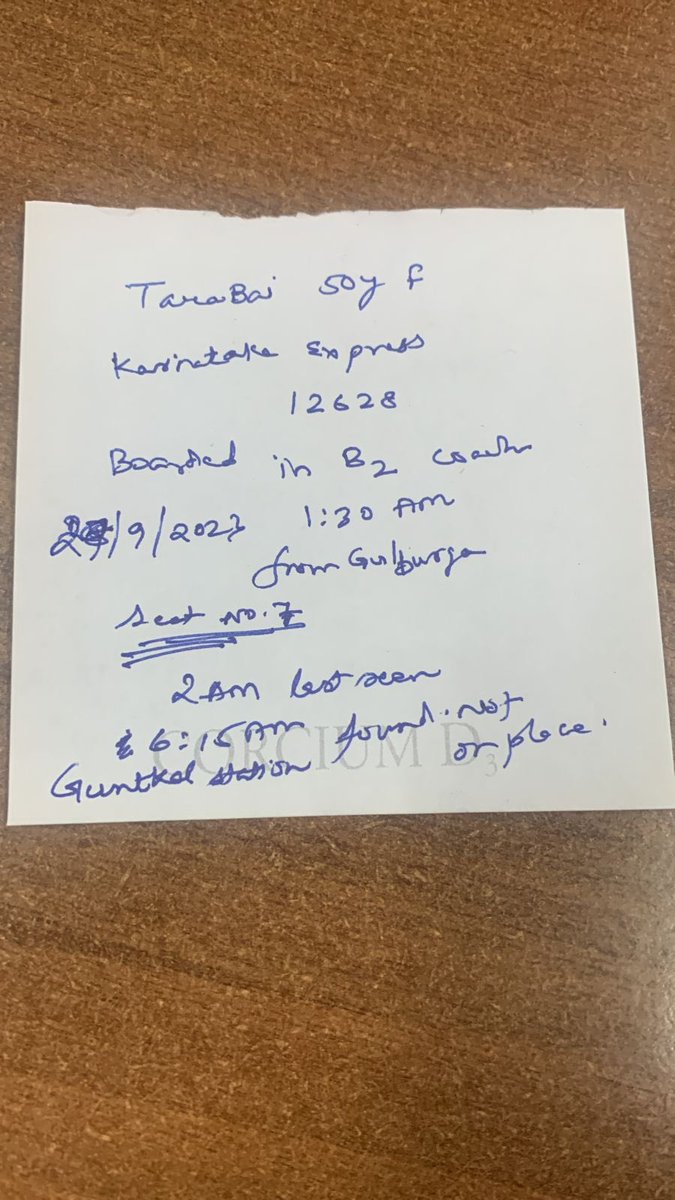 TaraBai 50y F
Karnataka Express
12628
Boarded in B2 coach
/9/2023 1:30 AM
from Gulburga
Seat No. 7
2 AM last seen
& 6:15 AM found. not
Guntkal station or place.
CORCIUM D3